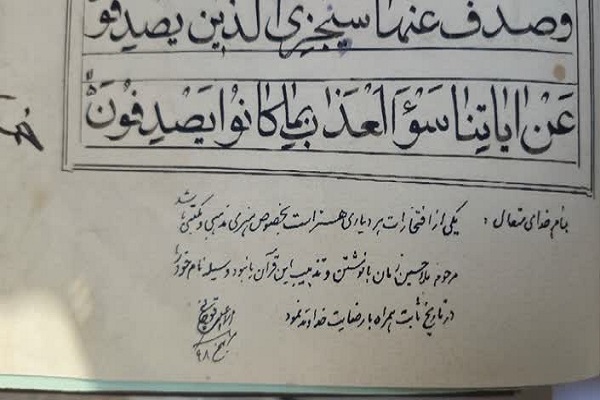 وَصَدَفَ عَنْهٰا سَنَجْزِی الَّذینَ یَصْدِفُو
عَنْ اٰیاتِنٰا سُۤوءَ الْعَذٰابِ بِمٰا کٰانُوا یَصْدِفُونَ
بنام خدای متعال : یکی از افتخارات هر دیاری هنر است بخصوص هنری مذهبی و مکتبی باشد
مرحوم ملا حسین زمان با نوشتن و تذهیب این قرآن با نبود وسیله نام خود را
در تاریخ ثابت همراه با رضایت خداوند نمود
۹۸